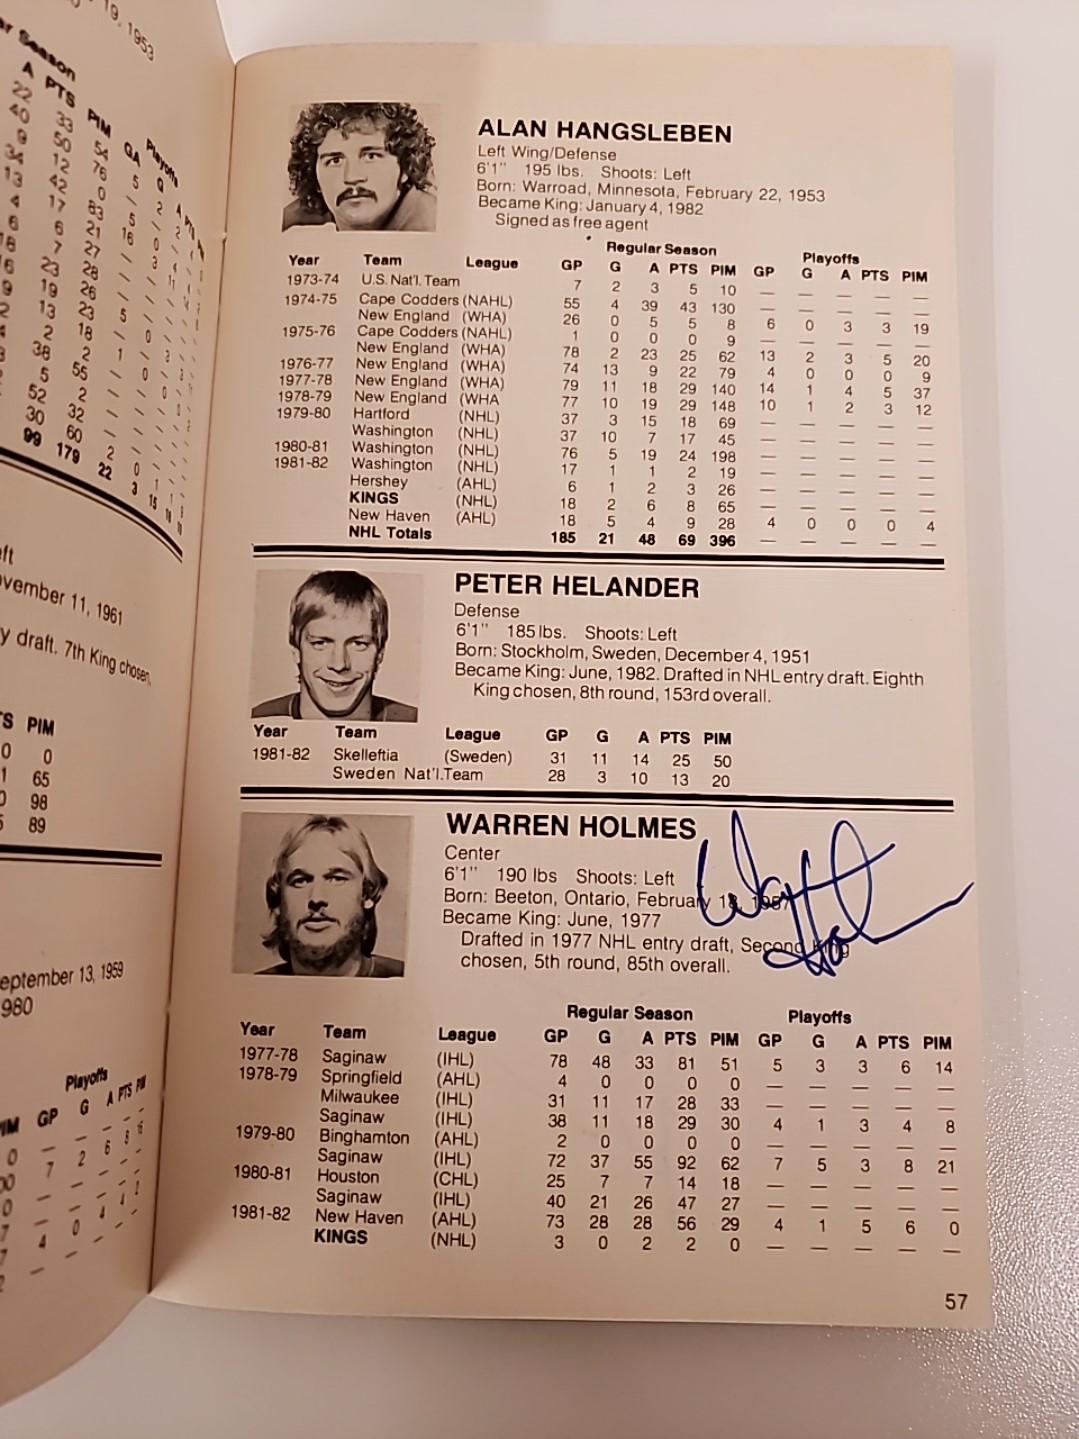 19, 1953
Season Playoffs
A PTS PIM GA G A
22 33 54 5 2
40 50 76
9 12 0
34 42 83
13 17 21
4 6 27
6 7 28
23 26
19 23
13 18
2 2
38 55
5 2
52 32
30 60 2 0 1
99 179 22 3 15 18 18
vember 11, 1961
y draft. 7th King chosen,
S PIM
0 0
1 65
0 98
5 89
eptember 13, 1959
980
Playoffs
IM GP G A PTS PIM
0 —
7 2 6 8 16
4 0 4 4 2
ALAN HANGSLEBEN
Left Wing/Defense
6'1" 195 lbs. Shoots: Left
Born: Warroad, Minnesota, February 22, 1953
Became King: January 4, 1982
Signed as free agent
Regular Season Playoffs
Year Team League GP G A PTS PIM GP G A PTS PIM
1973-74 U.S. Nat'l. Team 7 2 3 5 10 — — — — —
1974-75 Cape Codders (NAHL) 55 4 39 43 130 — — — — —
New England (WHA) 26 0 5 5 8 6 0 3 3 19
1975-76 Cape Codders (NAHL) 1 0 0 0 9 — — — — —
New England (WHA) 78 2 23 25 62 13 2 3 5 20
1976-77 New England (WHA) 74 13 9 22 79 4 0 0 0 9
1977-78 New England (WHA) 79 11 18 29 140 14 1 4 5 37
1978-79 New England (WHA 77 10 19 29 148 10 1 2 3 12
1979-80 Hartford (NHL) 37 3 15 18 69 — — — — —
Washington (NHL) 37 10 7 17 45 — — — — —
1980-81 Washington (NHL) 76 5 19 24 198 — — — — —
1981-82 Washington (NHL) 17 1 1 2 19 — — — — —
Hershey (AHL) 6 1 2 3 26 — — — — —
KINGS (NHL) 18 2 6 8 65 — — — — —
New Haven (AHL) 18 5 4 9 28 4 0 0 0 4
NHL Totals 185 21 48 69 396 — — — — —
PETER HELANDER
Defense
6'1" 185 lbs. Shoots: Left
Born: Stockholm, Sweden, December 4, 1951
Became King: June, 1982. Drafted in NHL entry draft. Eighth
King chosen, 8th round, 153rd overall.
Year Team League GP G A PTS PIM
1981-82 Skelleftia (Sweden) 31 11 14 25 50
Sweden Nat'l. Team 28 3 10 13 20
WARREN HOLMES
Center
6'1" 190 lbs Shoots: Left
Born: Beeton, Ontario, February 18, 1957
Became King: June, 1977
Drafted in 1977 NHL entry draft, Second King
chosen, 5th round, 85th overall.
Regular Season Playoffs
Year Team League GP G A PTS PIM GP G A PTS PIM
1977-78 Saginaw (IHL) 78 48 33 81 51 5 3 3 6 14
1978-79 Springfield (AHL) 4 0 0 0 0 — — — — —
Milwaukee (IHL) 31 11 17 28 33 — — — — —
Saginaw (IHL) 38 11 18 29 30 4 1 3 4 8
1979-80 Binghamton (AHL) 2 0 0 0 0 — — — — —
Saginaw (IHL) 72 37 55 92 62 7 5 3 8 21
1980-81 Houston (CHL) 25 7 7 14 18 — — — — —
Saginaw (IHL) 40 21 26 47 27 — — — — —
1981-82 New Haven (AHL) 73 28 28 56 29 4 1 5 6 0
KINGS (NHL) 3 0 2 2 0 — — — — —
57